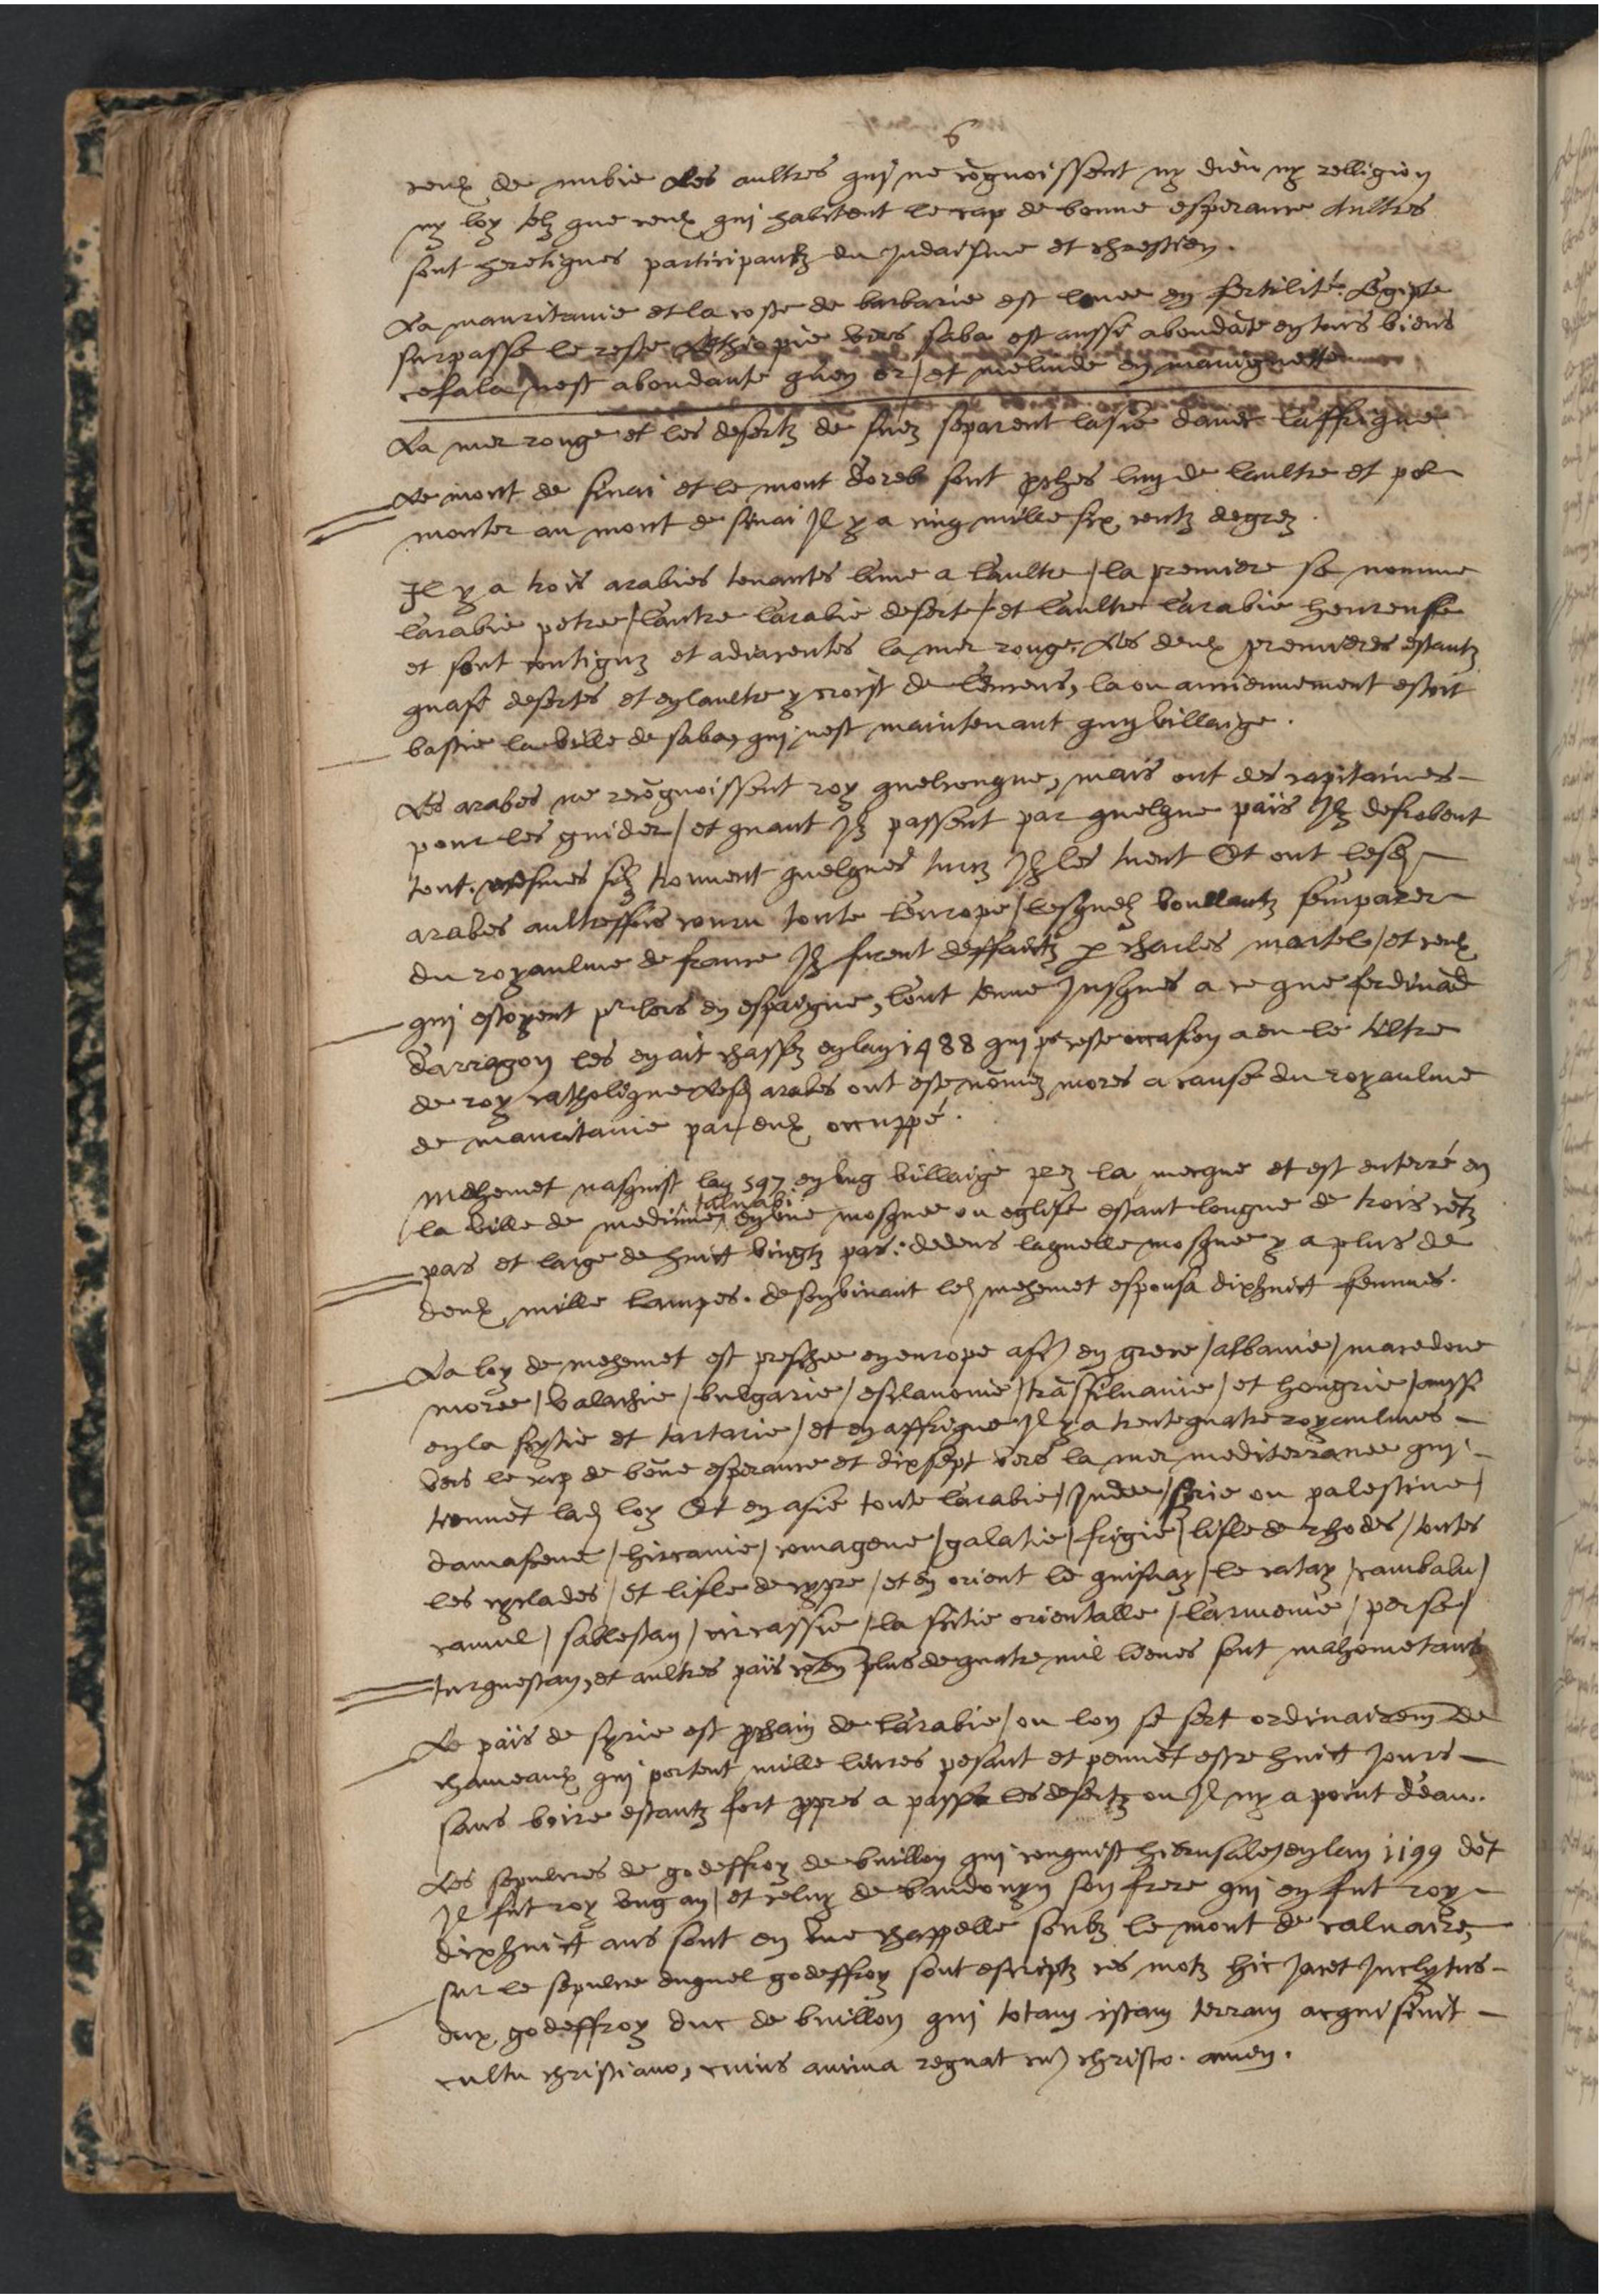 6
ceulx de nubie Les aultres qui ne cognoissent ny dieu ny relligion
ny loy telz que ceulx qui habitent le cap de bonne esperance Aultres
sont heretiques participantz du Judaisme et chrestien.
La mauritanie et la coste de barbarie est louee en fertilité. Legipte
surpasse le reste Lethiopie vers saba est aussi abondāte en tous biens
cefala nest abondante quen or / et melinde en maniguette
La mer rouge et les desertz de suez separent lasie davec laffrique
Le mont de sinai et le mont doreb sont proches lun de laultre et pōr
monter au mont de sinai Jl y a cinq mille six centz degrez.
Jl y a trois arabies tenantes lune a laultre / la premiere se nomme
larabie petree / lautre larabie deserte / et laultre larabie heureuse
et sont contiguz et adiacentes la mer rouge. Les deulx premieres estantz
quasi desertes et en laultre y croist de lencens, la ou anciennement estoit
bastie la ville de saba, qui nest maintenant quun villaige.
Les arabes ne recōgnoissent roy quelconque, mais ont des capitaines
pour les guider / et quant Jlz passent par quelque païs Jlz desrobent
tout. mesmes silz trouvent quelques turcz Jlz les tuent Et ont lesd
arabes aultreffois couru toute leurope / lesquelz voullantz semparer
du royaulme de france Jlz furent deffaictz p charles martel / et ceulx
qui estoyent pour lors en espaigne, lont tenue Jusques a ce que ferdinād
darragon les en ait chassez en lan 1488 qui pour ceste occasion a eu le tiltre
de roy catholique Lesd arabes ont este nōmez mores a cause du royaulme
de mauritanie par eulx occuppé.
Mehemet nasquist lan 597 en ung villaige prez la mecque et est enterré en
talnabi
la ville de medinne, en une mosquee ou eglise estant longue de trois cētz
pas et large de huict vingtz pas. dedens laquelle mosquee y a plus de
deulx mille lampes. de son vivant led mehemet espousa dixhuict femmes.
La loy de mehemet est preschee en europe ass en grece / albanie / macedone
moree / valachie / bulgarie / esclavonie / trāssilvanie / et hongrie / aussi
en la scytie et tartarie / et en affrique Jl y a trente quatre royaulmes
vers le cap de bōne esperance et dixsept vers la mer mediterranee qui
tiennēt lad loy Et en asie toute larabie / Judee / sirie ou palestine /
damascene / hircanie / comagene / galatie / frigie / lisle de rhodes / toutes
les cyclades / et lisle de cypre / et en orient le quisnay / le catay / cambalu /
camul / sablestan / circassie / la sitie orientalle / larmenie / perse /
turquestan, et aultres païs plus de quatre mil lieues sont mahometans
Le païs de syrie est prochain de larabie / ou lon se sert ordinairem de
chameaulx qui portent mille livres pesant et peuvēt estre huict Jours
sans boire estantz fort propres a passer les desertz ou Jl ny a point deau.
Les sepulcres de godeffroy de buillon qui conquist hierusalē en lan 1199 dōt
Jl fut roy ung an / et celuy de baudouyn son frere qui en fut roy
dixhuict ans sont en une chappelle soubz le mont de calvaire,
sur le sepulcre duquel godeffroy sont escriptz ces motz hic Jacet Jnclytus
dux godeffroy duc de buillon qui totam istam terram acquisivit
cultu christiano, cuius anima regnat cū christo. amen.